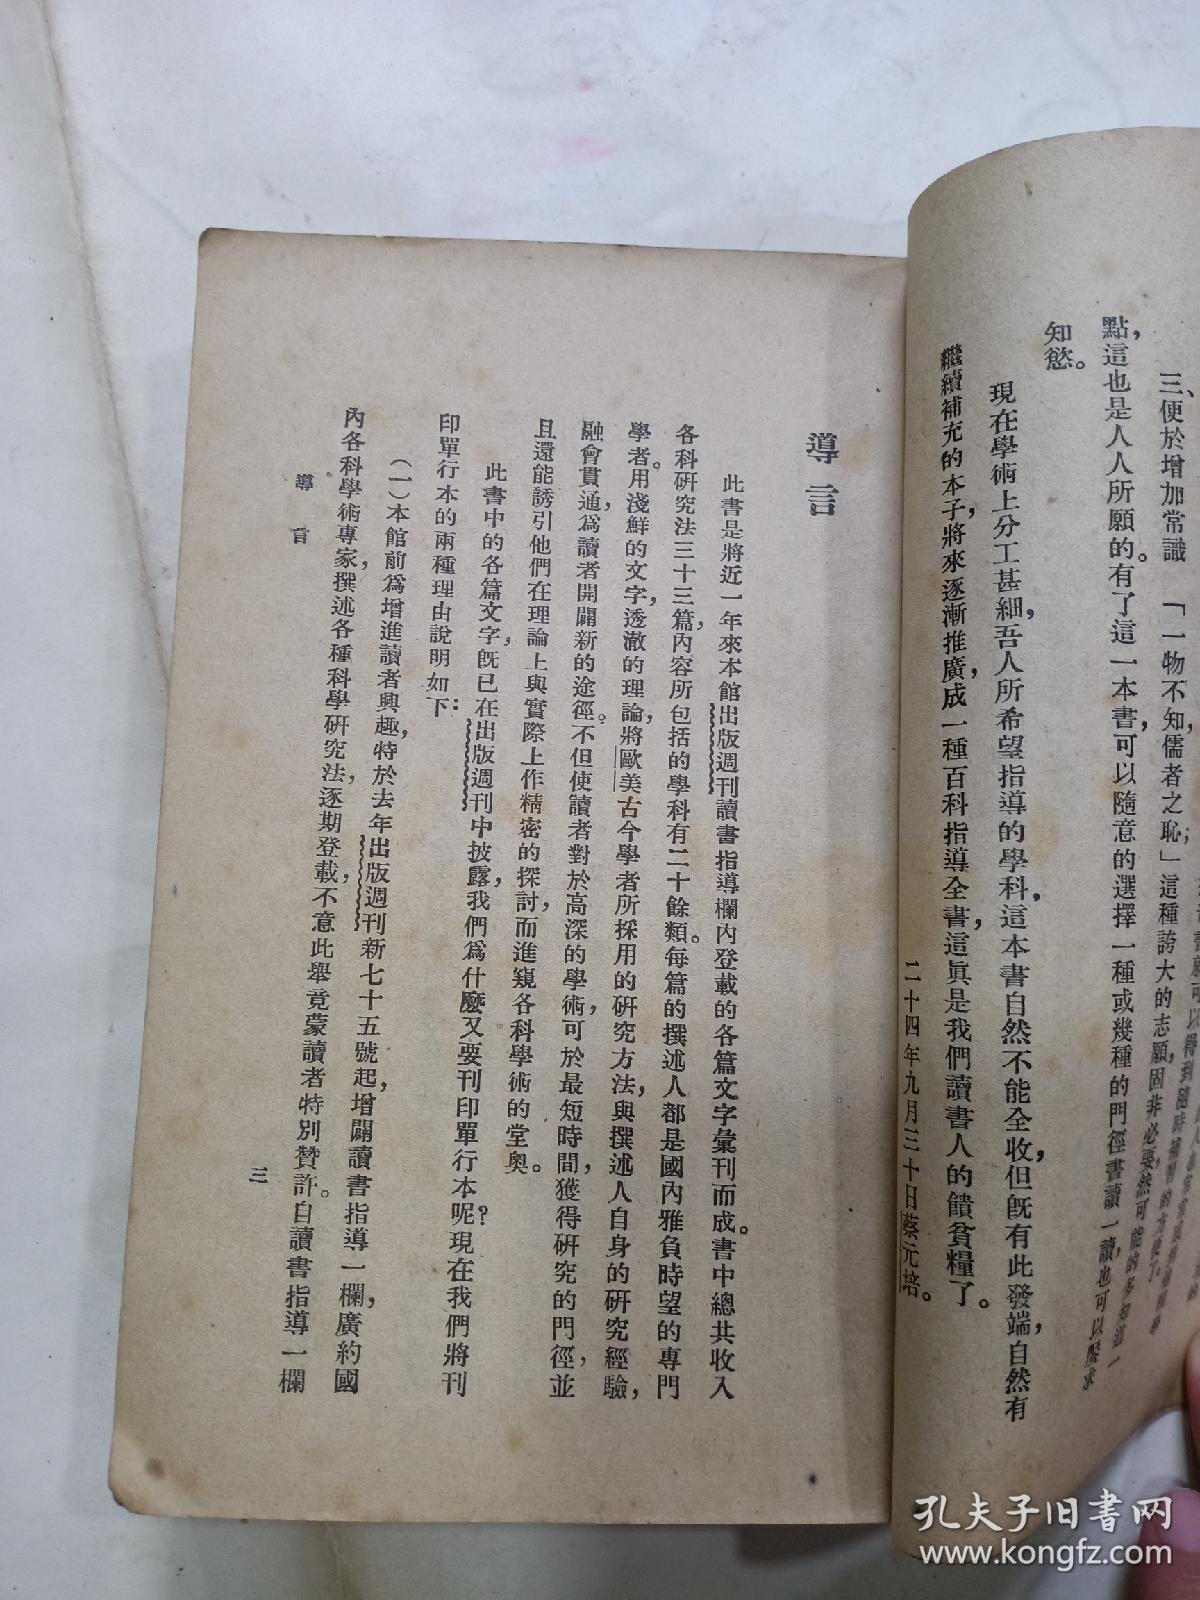 三、便於增加常識　「一物不知，儒者之恥」這種誇大的志願，固非必要，然可能的多知道一
點，這也是人人所願的。有了這一本書，可以隨意的選擇一種或幾種的門徑書讀一讀，也可以滿求
知慾。
現在學術上分工甚細，吾人所希望指導的學科，這本書自然不能全收，但既有此發端，自然有
繼續補充的本子，將來逐漸推廣，成一種百科指導全書，這眞是我們讀書人的饋貧糧了。
二十四年九月三十日蔡元培。
導言
此書是將近一年來本館出版週刊讀書指導欄內登載的各篇文字彙刊而成。書中總共收入
各科研究法三十三篇，內容所包括的學科有二十餘類。每篇的撰述人都是國內雅負時望的專門
學者。用淺鮮的文字，透澈的理論，將歐美古今學者所採用的研究方法，與撰述人自身的研究經驗，
融會貫通，爲讀者開闢新的途徑。不但使讀者對於高深的學術，可於最短時間，獲得研究的門徑，並
且還能誘引他們在理論上與實際上作精密的探討，而進窺各科學術的堂奧。
此書中的各篇文字，既已在出版週刊中披露，我們爲什麼又要刊印單行本呢？現在我們將刊
印單行本的兩種理由說明如下：
（一）本館前爲增進讀者興趣，特於去年出版週刊新七十五號起，增闢讀書指導一欄，廣約國
內各科學術專家，撰述各種科學研究法，逐期登載，不意此舉竟蒙讀者特別贊許。自讀書指導一欄
導言
三
孔夫子旧书网
www.kongfz.com